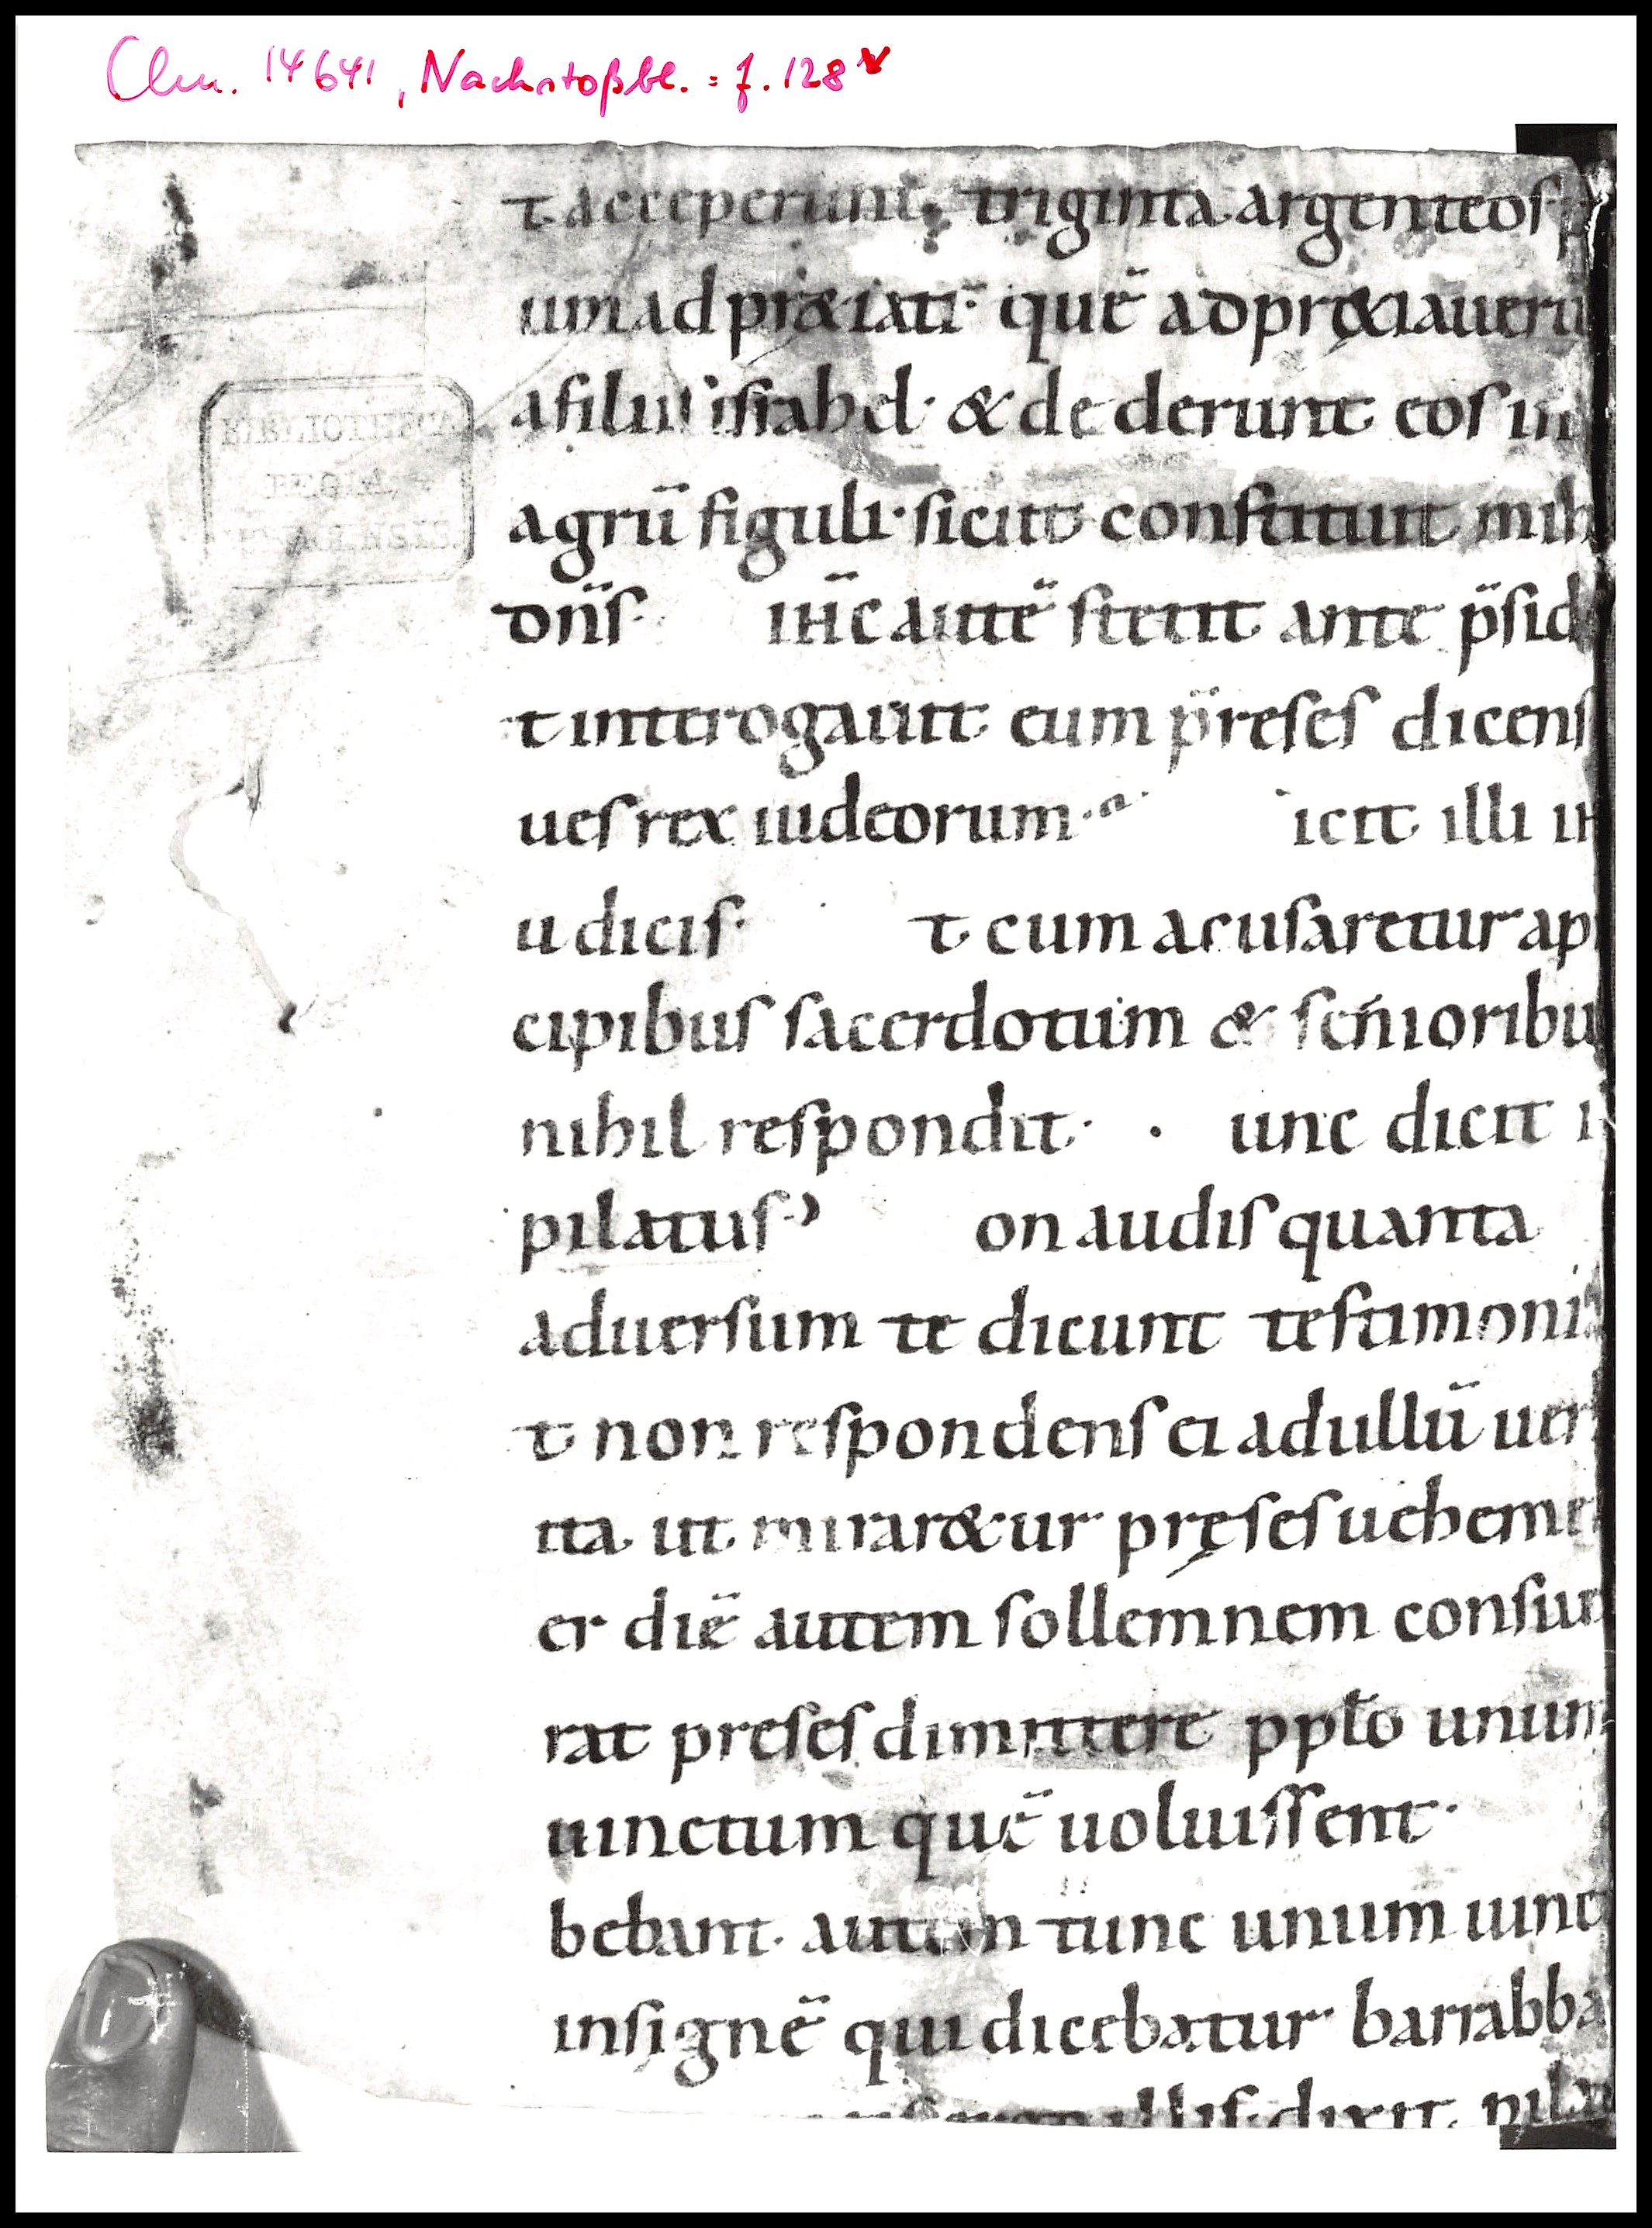 Clm. 14641, Nachstoßbl. = f. 128v
t acceperunt triginta argenteos
um adpr&iati· quē adpr&iaueru
a filiis israhel· & dederunt eos in
agrū figuli· sicut constituit mih
dn̄s· ih̄c autē stetit ante p̄sid
t interogauit eum p̄reses dicens
ues rex iudeorum· icit illi ih
u dicis· t cum acusaretur a p
cipibus sacerdotum & senioribu
nihil respondit· unc dicit i
pilatus· on audis quanta
aduersum te dicunt testimoni
t non respondens ei ad ullū uer
ita ut mirar&ur pręses uehem
er diē autem sollemnem consue
rat preses dimittere pplo unum
uinctum quē uoluissent·
bebant autem tunc unum uinc
insignē qui dicebatur barrabba
illis· dixit pila
BIBLIOTHECA
REGIA
MONACENSIS